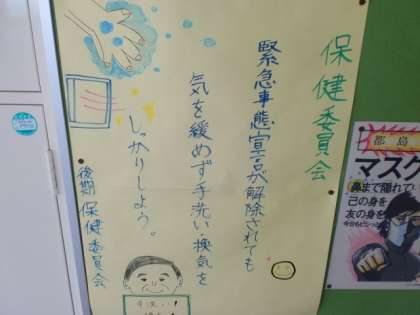 保健委員会
緊急事態宣言が解除されても
気を緩めず手洗い・換気を
しっかりしよう。
後期 保健委員会
手洗い!
都島
マスク
鼻まで隠れて
己の身を
友の身を